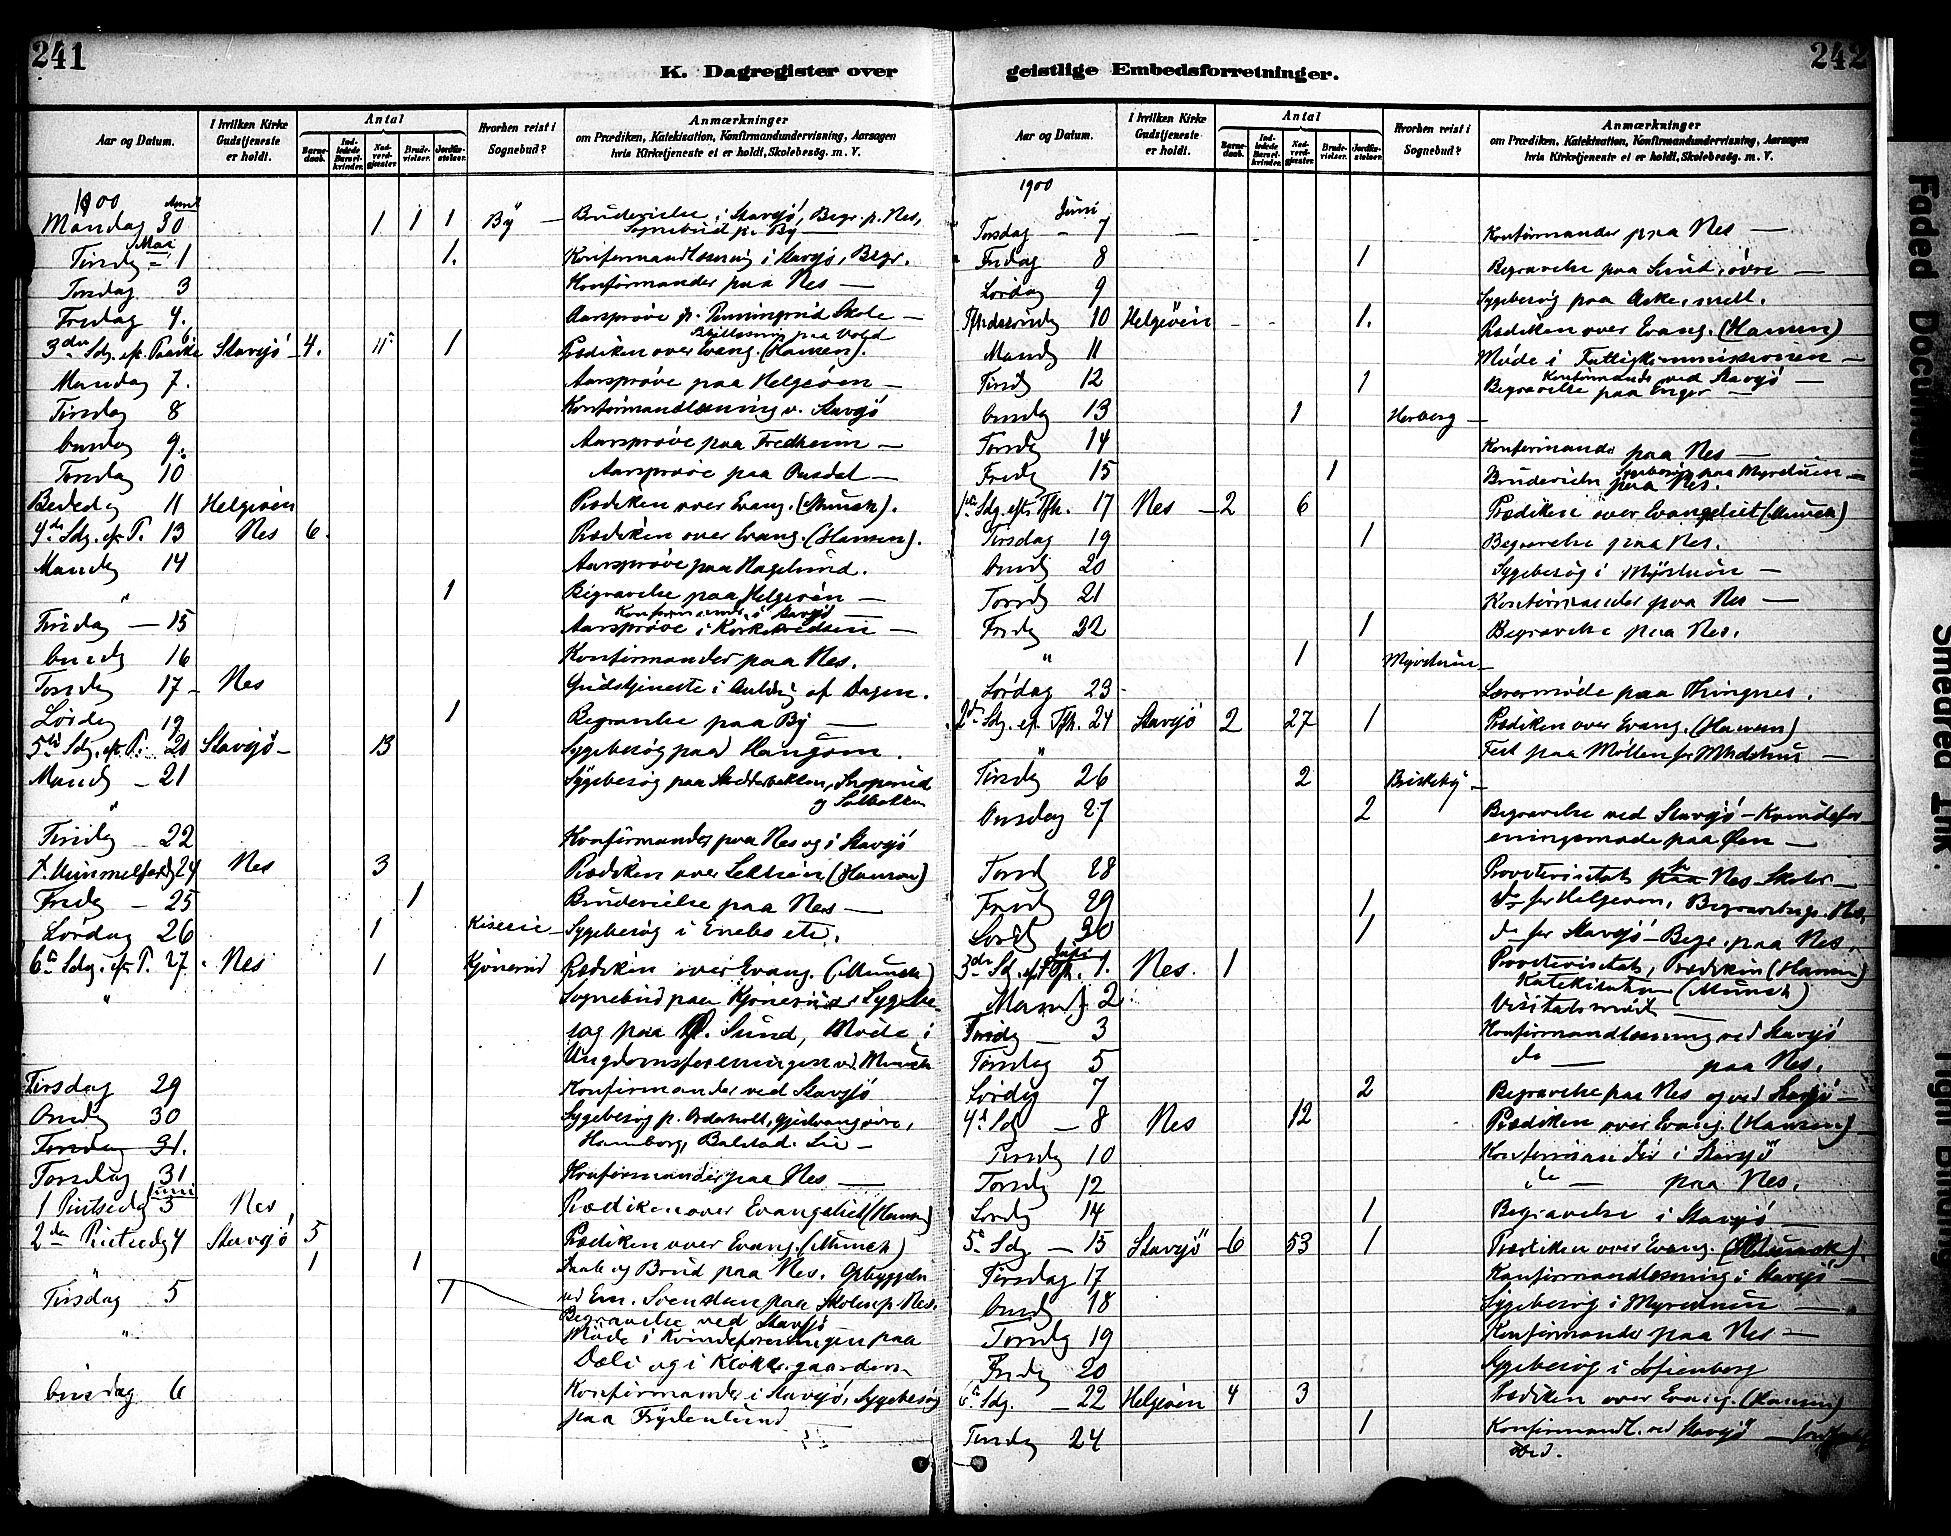 241
K. Dagregister over
Aar og Datum.
I hvilken Kirke Gudstjeneste er holdt.
Antal
Barne-daab.
Ind-ledede Barsel-kvinder.
Nad-verd-gjester.
Brude-vielser.
Jordfæ-stelser.
Hvorhen reist i Sognebud?
Anmærkninger
om Prædiken, Katekisation, Konfirmandundervisning, Aarsagen
hvis Kirketjeneste ei er holdt, Skolebesøg. m. V.
1900 April
Mandag 30 1 1 1 By — Brudevielse i Stavsjö, Begr. p. Nes,
Sognebud p. By —
Mai
Tirsdg 1 1. Konfirmandlæsning i Stavsjö, Begr.
Torsdag 3 Konfirmander paa Nes —
Fredag 4. Aarsprøve p. Skole —
paa Vold
3die Sdg. eft. Paaske 6 Stavsjö 4. 11 1 Prædiken over Evang. (Hansen).
Mandag 7. Aarsprøve paa Helgøen —
Tirsdag 8 Konfirmandlæsning v. Stavsjö
Onsdag 9. Aarsprøve paa Fredheim —
Torsdag 10 Aarsprøve paa
Bededag 11 Helgøen Prædiken over Evang. (Munch).
4de Sdg. ef. P. 13 Nes 6. Prædiken over Evang. (Hansen).
Mandg 14 Aarsprøve paa Hagelund.
" 1 Begravelse paa Helgøen —
Konfirmander i Stavsjö
Tirsdag — 15 Aarsprøve i Kirkekredsen —
Onsdg 16 Konfirmander paa Nes.
Torsdag 17 - Nes Gudstjeneste i Anledng af Dagen.
Lørdag 19 1 Begravelse paa By —
5te Sdg. ef. P. 20 Stavsjö — 13 Sygebesøg paa
Mandg — 21 Sygebesøg paa
og Solbakken
Tirsdg — 22 Konfirmander paa Nes og i Stavsjö
Kr. Himmelfardg 24 Nes 3 Prædiken over Lektien (Hansen)
Fredg — 25 1 Brudevielse paa Nes —
Lørdag 26 1 Sygebesøg i etc.
6te Sdg. ef. P. 27 Nes 1 Kjønerud Prædiken over Evang. (Munch)
" Sognebud paa Kjønerud Sygebe-
søg paa Sund, Møde i
Ungdomsforeningen ved Munch
Tirsdag 29 Konfirmander ved Stavsjö
Onsdg 30 Sygebesøg p.
Balstad. Lie —
Torsdag 31.
Torsdag 31 Konfirmander paa Nes —
Juni
1 Pintsedag 3 Nes Prædiken over Evangeliet (Hansen)
2den Pintsedg 4 Stavsjö 5 Prædiken over Evang. (Munch)
" 1 1 Daab og Brud paa Nes. Opbyggelse
Tirsdag 5 1 ved Em. Svendsen paa Skolen p. Nes.
Begravelse ved Stavsjö
" Møde i Kvindeforeningen paa
Dæli og i Klokkergaarden
Onsdag 6 Konfirmander i Stavsjö, Sygebesøg
paa Frydenlund —
242
geistlige Embedsforretninger.
Aar og Datum.
I hvilken Kirke Gudstjeneste er holdt.
Antal
Barne-daab.
Ind-ledede Barsel-kvinder.
Nad-verd-gjester.
Brude-vielser.
Jordfæ-stelser.
Hvorhen reist i Sognebud?
Anmærkninger
om Prædiken, Katekisation, Konfirmandundervisning, Aarsagen
hvis Kirketjeneste ei er holdt, Skolebesøg. m. V.
1900
Juni
Torsdag — 7 — Konfirmander paa Nes —
Fredag 8 1 Begravelse paa Sund, øvre —
Lørdag 9 Sygebesøg paa
10 Helgøen 1. Prædiken over Evang. (Hansen)
Mandg 11 Møde i Fattigkommissionen —
Konfirmander ved Stavsjö —
Tirsdg 12 1 Begravelse paa —
Onsdg 13 1 —
Torsdg 14 Konfirmander paa Nes —
Sygebesøg paa —
Fredg 15 1 Brudevielse paa Nes.
1ste Sdg. eft. Tfh. 17 Nes — 2 6 Prædiken over Evangeliet (Munch)
Tirsdag 19 1 Begravelse paa Nes.
Onsdg 20 Sygebesøg i —
Torsdg 21 Konfirmander paa Nes —
Fredg 22 1 Begravelse paa Nes.
" 1 —
Lørdag 23 Lærermøde paa Thingnes.
2den Sdg. ef. Tfh. 24 Stavsjö 2 27 1 Prædiken over Evang. (Hansen)
" Fest paa Møllen for —
Tirsdg 26 2 Briskeby —
Onsdag 27 2 Begravelse ved Stavsjö — Kvindefor-
eningsmøde paa Øen —
Torsd 28 Provstevisitats paa for Nes Skoler —
Fredg 29 1 do for Helgøen, Begravelse p. Nes,
Lørdg 30 1 do for Stavsjö — Begr. paa Nes.
Juli
3die Sdg. eft. Tfh. 1. Nes. 1 Provstevisitats, Prædiken (Hansen)
Katekisation (Munch)
Mandg 2 Visitatsmøde —
Tirsdg — 3 Konfirmandlæsning ved Stavsjö
Torsdag 5 do — paa Nes.
Lørdag 7 2 Begravelse paa Nes og ved Stavsjö —
4de Sdg — 8 Nes 12 Prædiken over Evang. (Hansen) —
Tirsdg 10 Konfirmander i Stavsjö
Torsdg 12 do — paa Nes.
Lørdg 14 1 Begravelse i Stavsjö —
5te Sdg. — 15 Stavsjö — 6 53 1 Prædiken over Evang. (Munch).
Tirsdag 17 Konfirmandlæsning i Stavsjö —
Onsdg 18 Sygebesøg i —
Torsdg 19 Konfirmander paa Nes —
Fredg 20 Sygebesøg i Sofienborg
6te Sdg. — 22 Helgøen 4 3 Prædiken over Evang. (Hansen)
Tirsdg 24 1 Konfirmandl. ved Stavsjö —
Faded Document
Smeared Ink.
Tight Binding